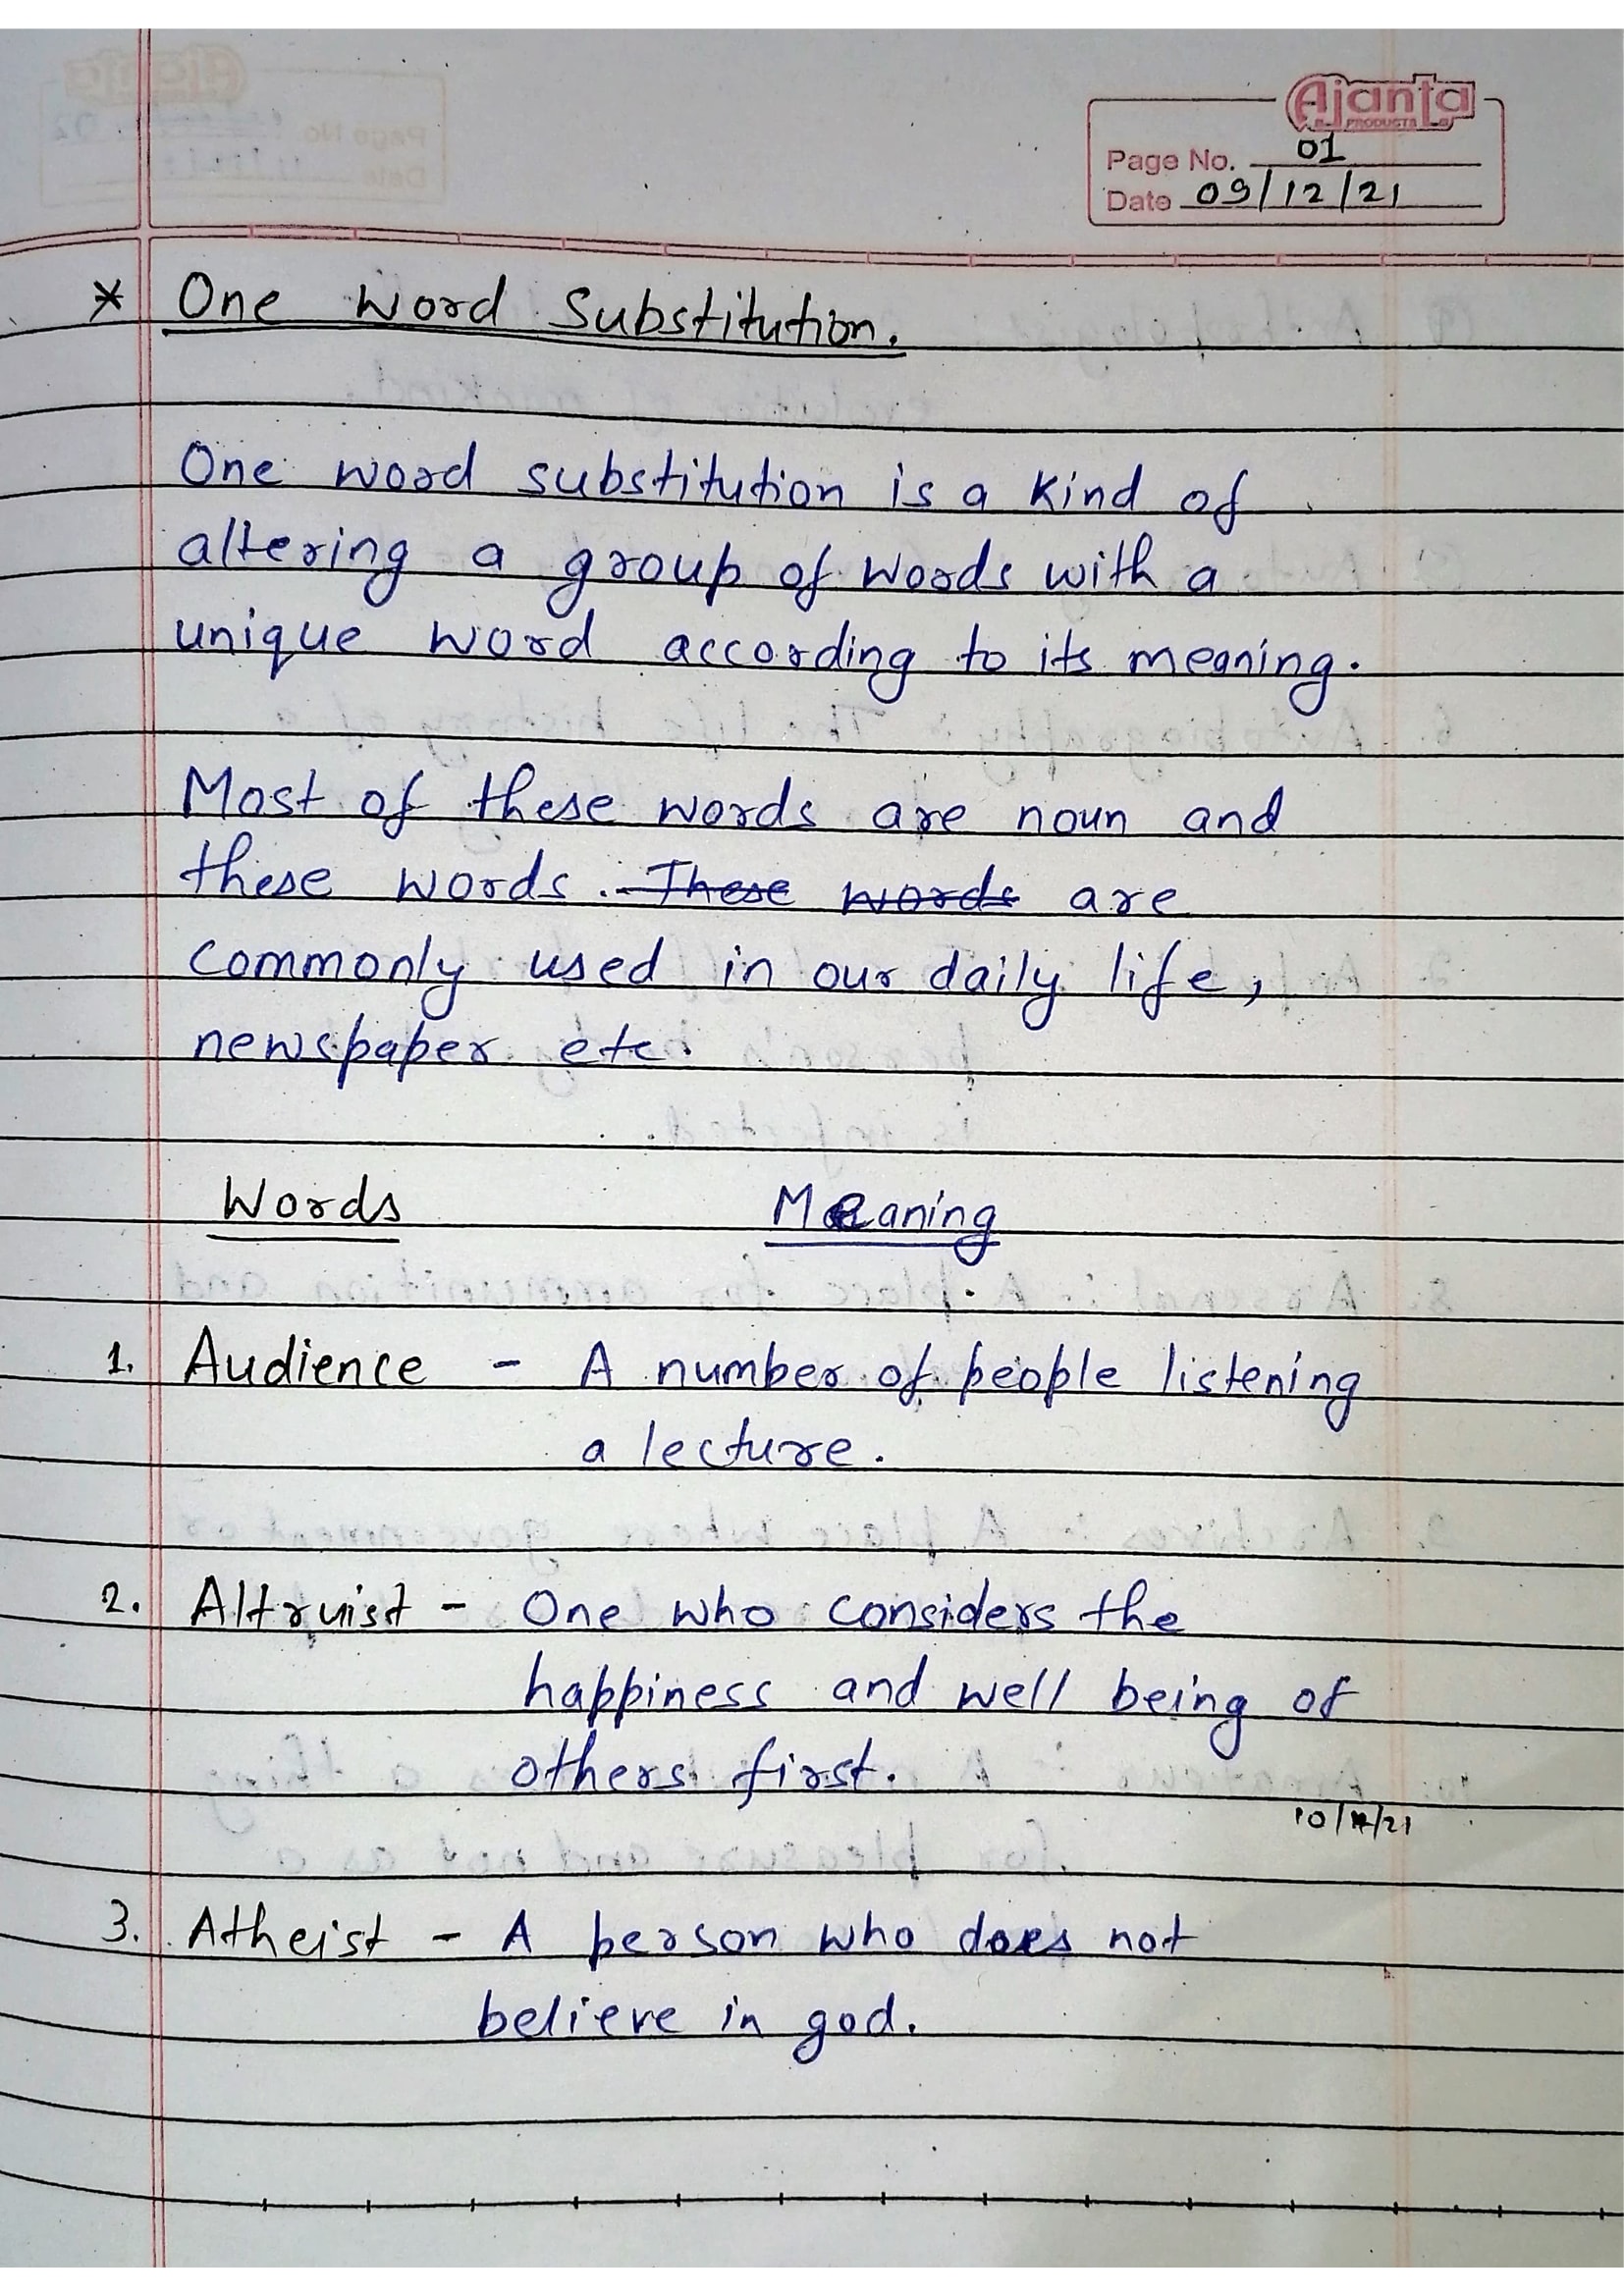 Ajanta
PRODUCTS
Page No. 01
Date 09/12/21
* One Word Substitution.
One word substitution is a kind of
altering a group of words with a
unique word according to its meaning.
Most of these words are noun and
these words. These words are
commonly used in our daily life,
newspaper etc.
Words Meaning
1. Audience - A number of people listening
a lecture.
2. Altruist - One who considers the
happiness and well being of
others first.
3. Atheist - A person who does not
believe in god.